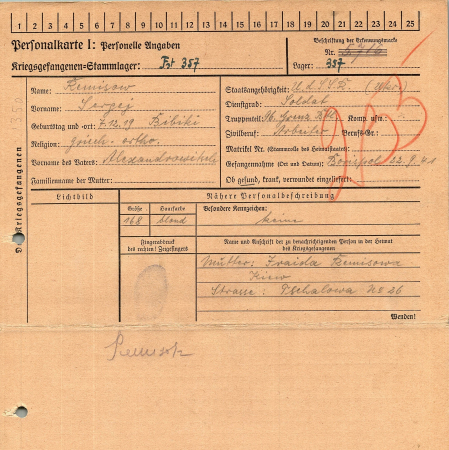 1 2 3 4 5 6 7 8 9 10 11 12 13 14 15 16 17 18 19 20 21 22 23 24 25
Personalkarte I: Personelle Angaben
Beschriftung der Erkennungsmarke
Kriegsgefangenen-Stammlager: Fst 357
Lager: 357
Des Kriegsgefangenen
Name: Remisow
Vorname: Sergej
Geburtstag und -ort: 7.12.19 Bibiki
Religion: griech. ortho.
Vorname des Vaters: Alexandrowitsch
Familienname der Mutter:
Staatsangehörigkeit: U.d.S.S.R.
Dienstgrad: Soldat
Truppenteil: 16. Grenz Btl. Komp. usw.:
Zivilberuf: Arbeiter Berufs-Gr.:
Matrikel Nr. (Stammrolle des Heimatstaates):
Gefangennahme (Ort und Datum): Borispol 22.9.41
Ob gesund, krank, verwundet eingeliefert:
Lichtbild
Nähere Personalbeschreibung
Größe Haarfarbe Besondere Kennzeichen:
168 blond keine
Fingerabdruck des rechten! Zeigefingers
Name und Anschrift der zu benachrichtigenden Person in der Heimat des Kriegsgefangenen
Mutter: Iraida Remisowa
Kiew
Strasse: Tschalowa No 26
Wenden!